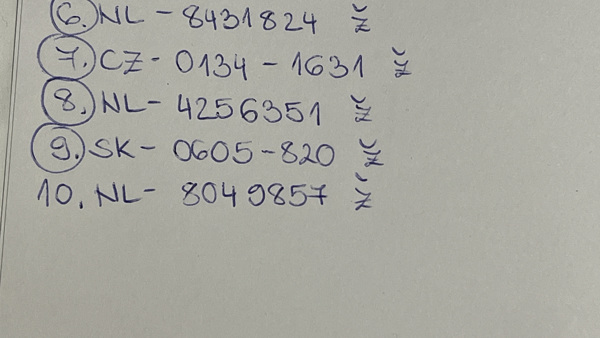 6. NL - 8431824 ž
7. CZ - 0134 - 1631 ž
8. NL - 4256351 ž
9. SK - 0605-820 ž
10. NL - 8049857 ž